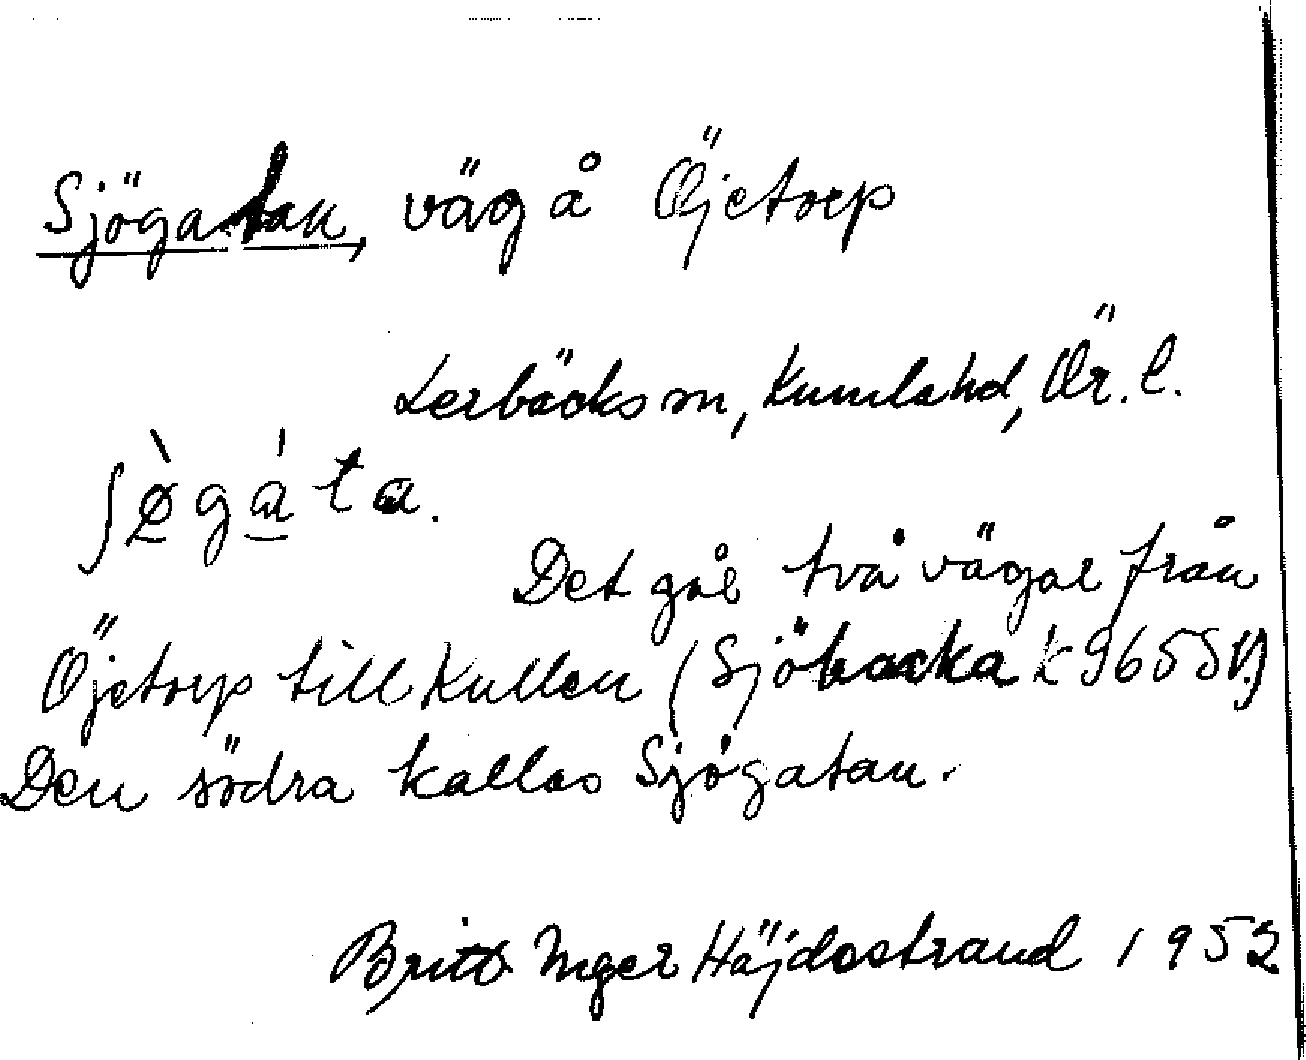 Sjögatan, väg å Öjetorp
Lerbäcks sn, Kumla hd, Ör. l.
ʃø̀gáta.
Det går två vägar från
Öjetorp till Kullen (Sjöbacka k 9655 V)
Den södra kallas Sjögatan.
Britt Inger Häjdestrand 1952